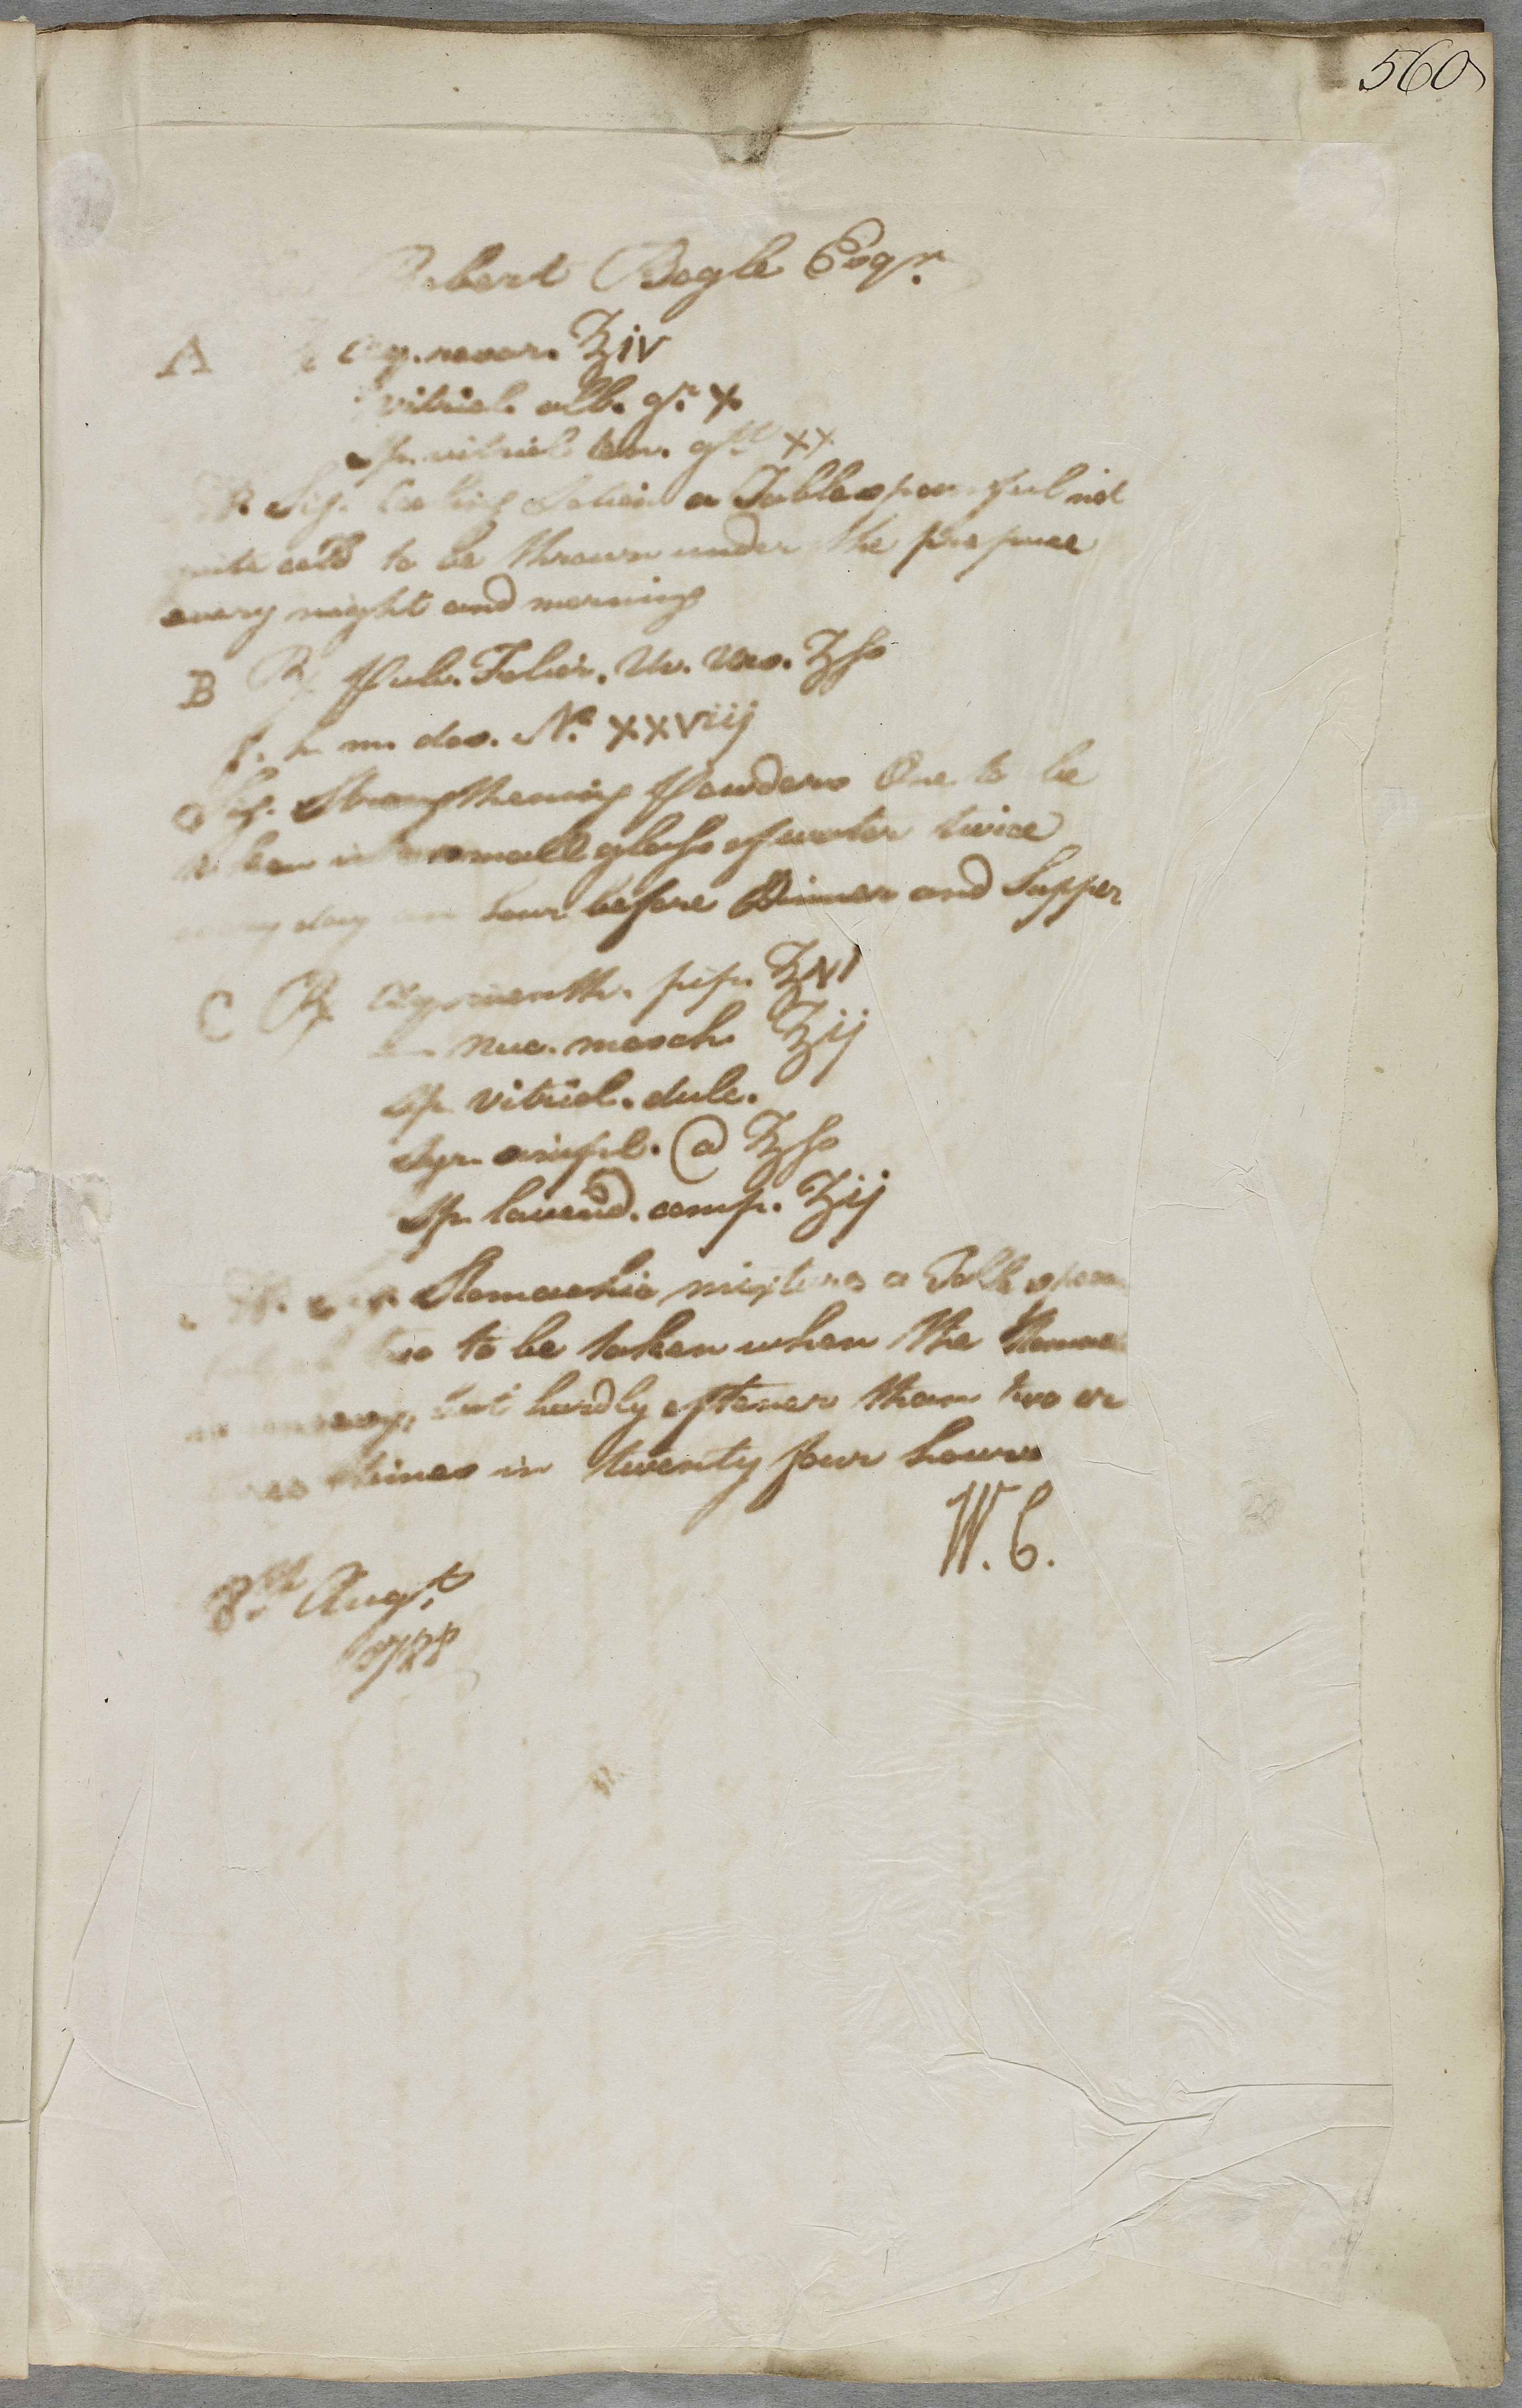 560
Robert Bogle Esqr.
A ℞ Aq. rosar. ℥iv
vitriol. alb. gr. x
Sp. vitriol. ten. gtt. xx
M. Sig. Cooling Lotion a Tablespoonful not
quite cold to be thrown under the prepuce
every night and morning
B ℞ Pulv. Folior. Uv. Urs. ʒſs
f. h. m. dos. No. xxviij
Sig. Strengthening Powders One to be
taken in a small glaſs of water twice
every day an hour before Dinner and Supper
C ℞ Aq. menth. pip. ℥vi
nuc. mosch. ℥ij
Sp. vitriol. dulc.
Syr. simpl. @ ℥ſs
Sp. lavend. comp. ʒij
M. Sig. Stomachic mixture a Table spoon
two to be taken when the Stomac
uneasy, but hardly oftener than two or
three times in twenty four hours
W. C.
8th Augt.
1788